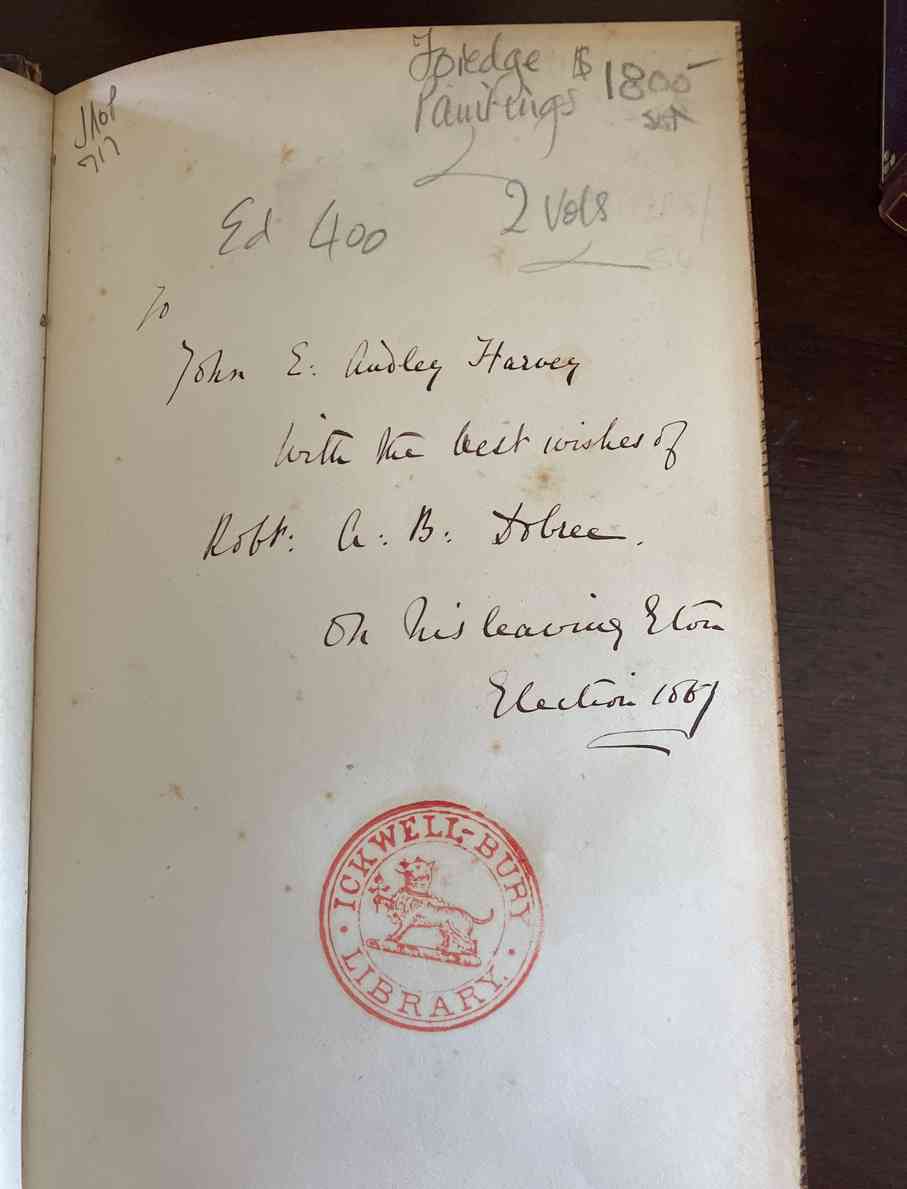 Foredge $ 1800-
Paintings set
2 Vols
Ed 400
To
John E: Audley Harvey
With the best wishes of
Robt: A: B: Dobree.
On his leaving Eton
Election 1867
ICKWELL-BURY
LIBRARY.